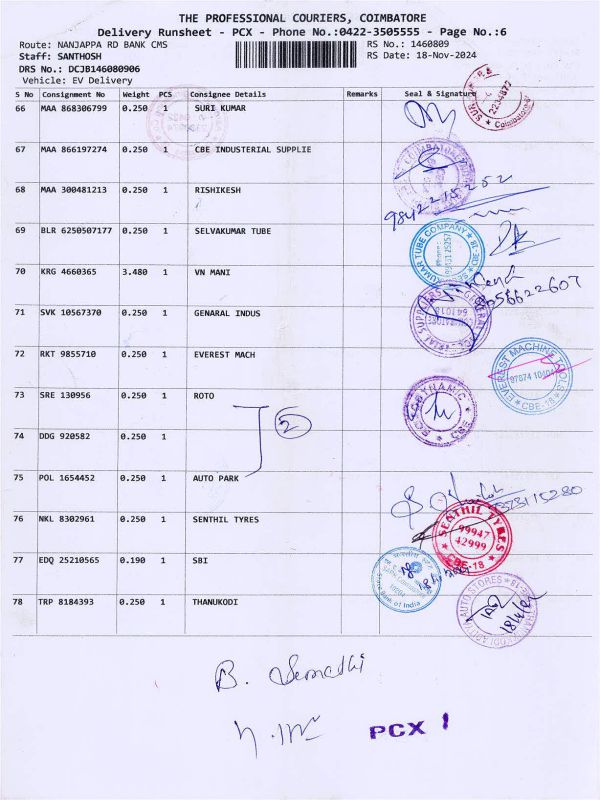 THE PROFESSIONAL COURIERS, COIMBATORE
Delivery Runsheet - PCX - Phone No.:0422-3505555 - Page No.:6
Route: NANJAPPA RD BANK CMS
RS No.: 1460809
Staff: SANTHOSH
RS Date: 18-Nov-2024
DRS No.: DCJB146080906
Vehicle: EV Delivery
S No Consignment No Weight PCS Consignee Details Remarks Seal & Signature
66 MAA 868306799 0.250 1 SURI KUMAR
67 MAA 866197274 0.250 1 CBE INDUSTERIAL SUPPLIE
68 MAA 300481213 0.250 1 RISHIKESH
9842215252
69 BLR 6250507177 0.250 1 SELVAKUMAR TUBE
70 KRG 4660365 3.480 1 VN MANI
71 SVK 10567370 0.250 1 GENARAL INDUS
72 RKT 9855710 0.250 1 EVEREST MACH
EVEREST MACHINE TOOLS
97874 10404
CBE-18
73 SRE 130956 0.250 1 ROTO
ROTODYNAMIC
CBE
2
74 DDG 920582 0.250 1
75 POL 1654452 0.250 1 AUTO PARK
76 NKL 8302961 0.250 1 SENTHIL TYRES
SENTHIL TYRES
99947
42999
CBE-18
77 EDQ 25210565 0.190 1 SBI
State Bank of India
78 TRP 8184393 0.250 1 THANUKODI
AUTO STORES
B. Sumathi
PCX 1